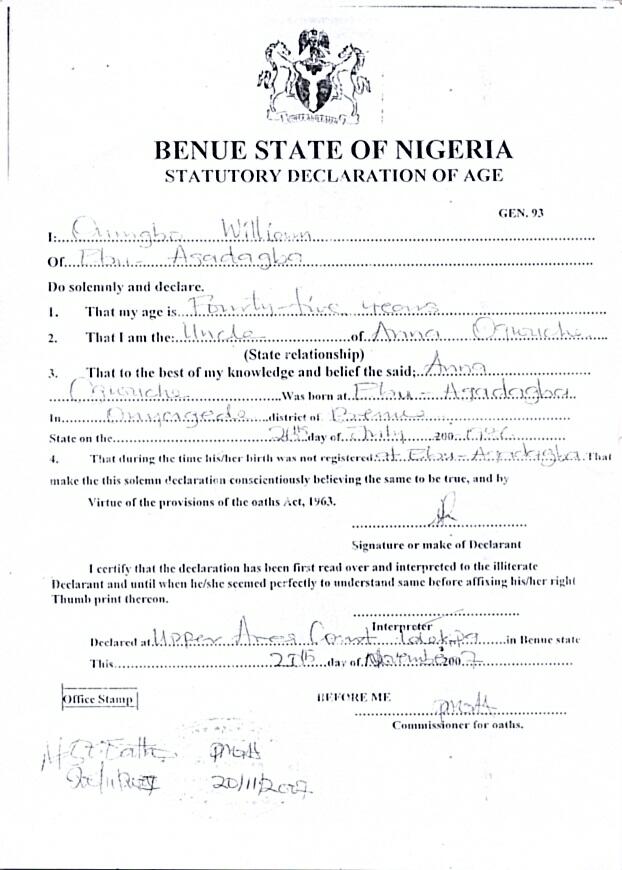 BENUE STATE OF NIGERIA
STATUTORY DECLARATION OF AGE
GEN. 93
I: William
Of Ebu - Agadagba
Do solemnly and declare.
1. That my age is Fourty-five years
2. That I am the: Uncle of Anna Ogwuche
(State relationship)
3. That to the best of my knowledge and belief the said; Anna
Ogwuche Was born at Ebu - Agadagba
In Onyagede district of Benue
State on the day of July 200
4. That during the time his/her birth was not registered at Ebu - Agadagba That
make the this solemn declaration conscientiously believing the same to be true, and by
Virtue of the provisions of the oaths Act, 1963.
Signature or make of Declarant
I certify that the declaration has been first read over and interpreted to the illiterate
Declarant and until when he/she seemed perfectly to understand same before affixing his/her right
Thumb print thereon.
Interpreter
Declared at Upper Area Court in Benue state
This day of 2007
Office Stamp
BEFORE ME
Commissioner for oaths.
20/11/2007